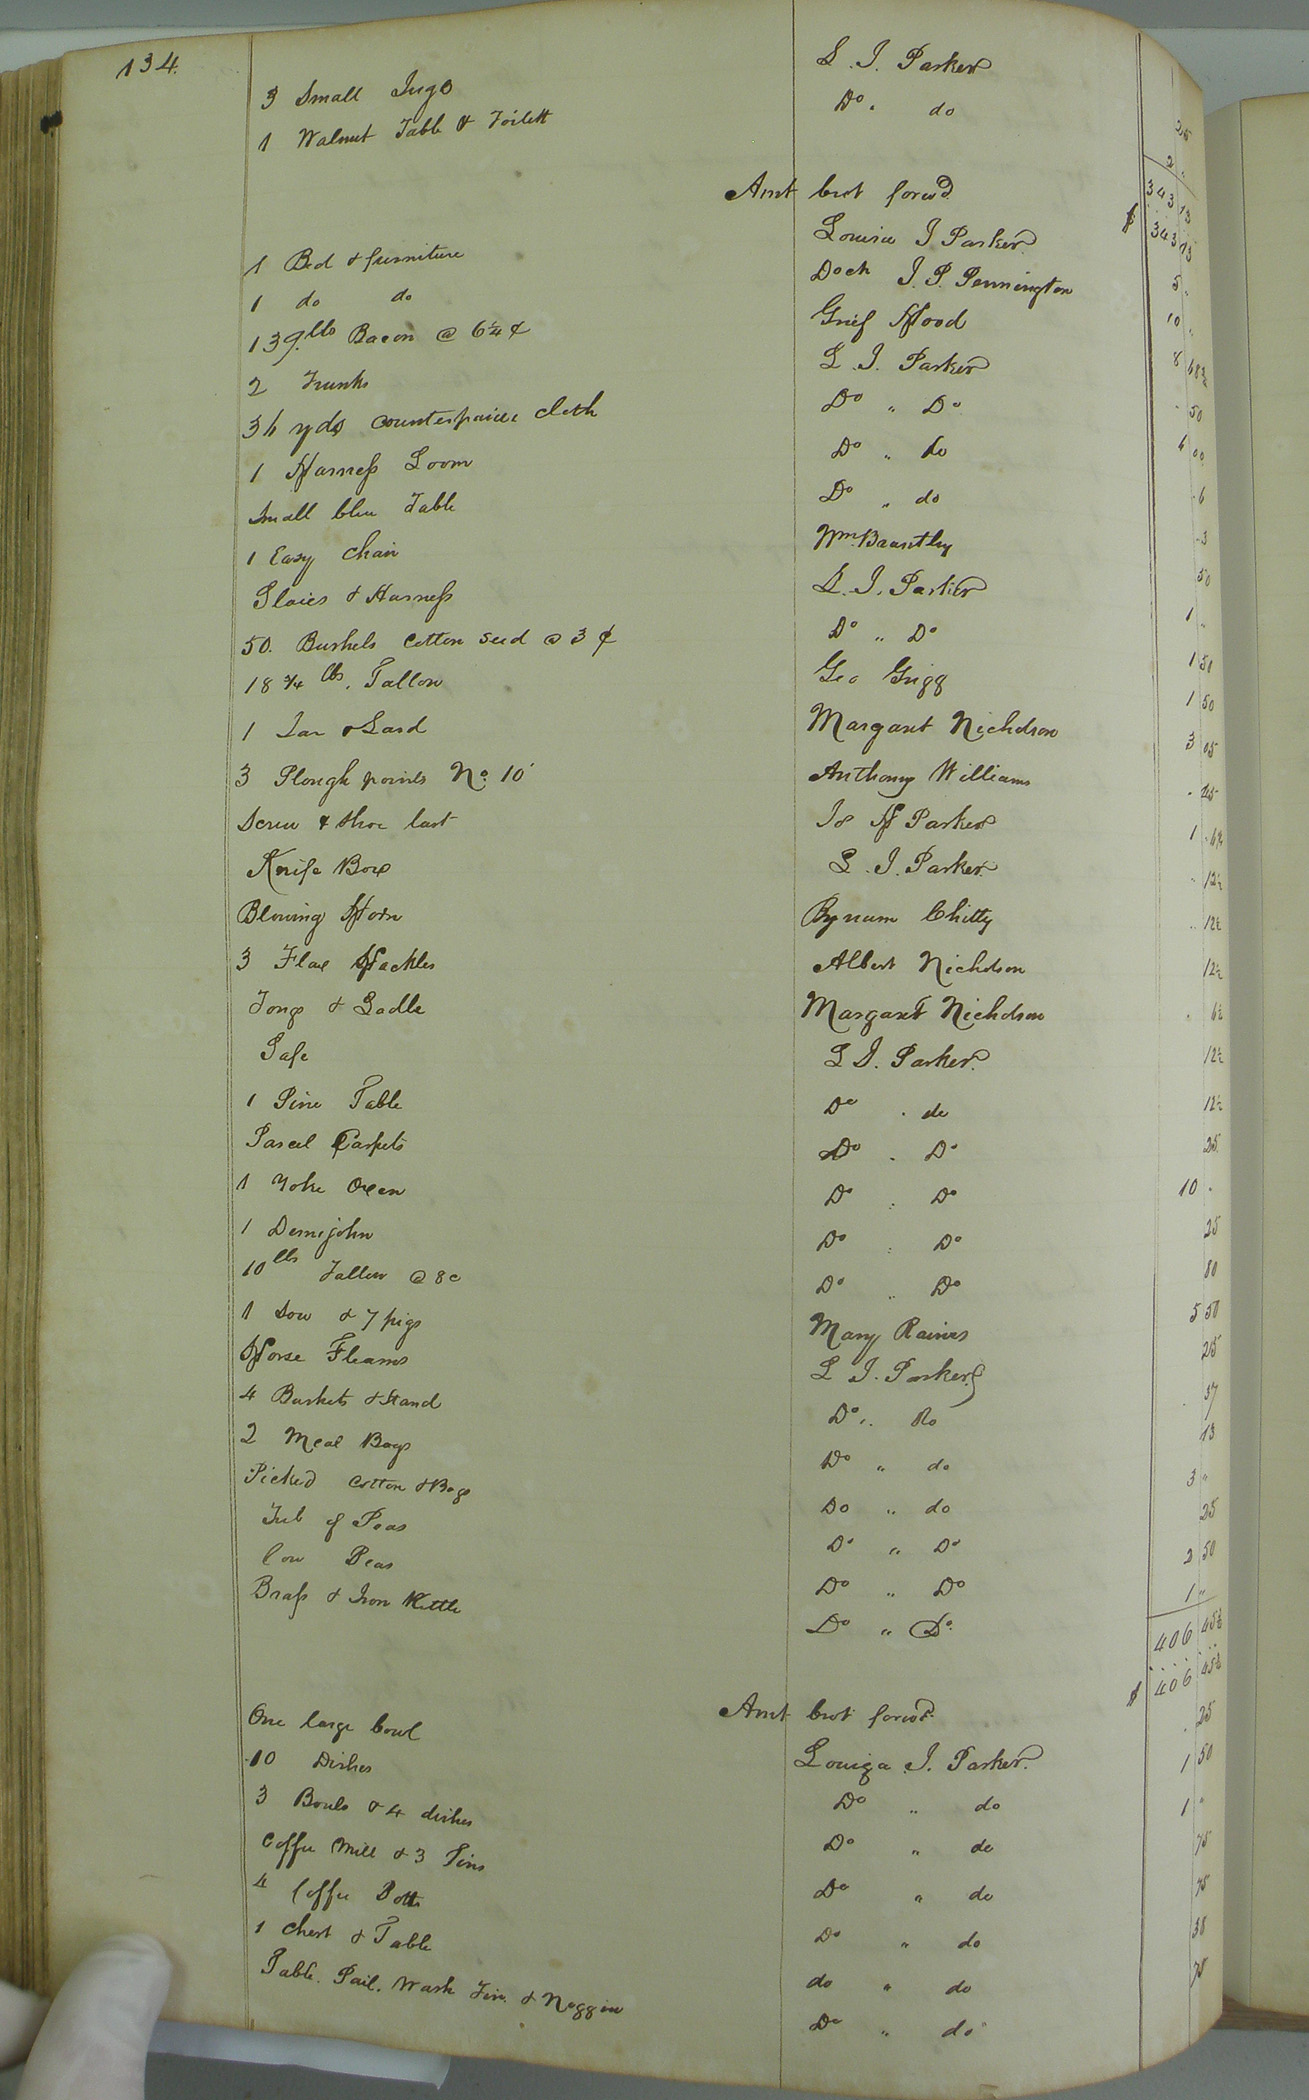 134.
3 Small Jugs L. J. Parker 25
1 Walnut Table & Toilett Do. do 2 "
Amt brot forwd. 343 13
$ 343 13
1 Bed & furniture Louisa J Parker 5 "
1 do do Dock J. P. Pennington 10 "
139 lbs Bacon @ 6¼ ¢ Grief Hood 8 68¾
2 Trunks L. J. Parker 50
36 yds counterpaice cloth Do " Do 6 00
1 Harness Loom Do " do 6
Small blue Table Do " do 3
1 Easy Chair Wm. Brantley 50
Slaies & Harness L. J. Parker 1 "
50. Bushels Cotton Seed @ 3 ¢ Do " Do 1 50
18 ¾ lbs. Tallow Geo Grigg 1 50
1 Jar & Lard Margaret Nicholson 3 05
3 Plough points No. 10 Anthony Williams 25
Screw & Shoe last Js H Parker 1 6¼
Knife Box L. J. Parker 12½
Blowing Horn Bynum Chitty 12½
3 Flax Hackles Albert Nicholson 12½
Tongs & Ladle Margaret Nicholson 6¼
Safe L J. Parker. 12½
1 Pine Table Do . do 12½
Parcel Carpets Do . Do 25
1 Yoke Oxen Do : Do 10 "
1 Demijohn Do : Do 25
10 lbs Tallow @ 8c Do " Do 80
1 Sow & 7 pigs Mary Raines 5 50
Horse Fleams L J. Parker 25
4 Baskets & Stand Do " Do 37
2 Meal Bags Do " do 13
Picked Cotton & Bags Do " do 3 "
Tub of Peas Do " Do 25
Cow Peas Do " Do 2 50
Brass & Iron Kettle Do " Do. 1 "
406 45½
Amt brot forwd. $ 406 45½
One large bowl Louiza J. Parker. 25
10 Dishes Do " do 1 50
3 Bowls & 4 dishes Do " do 1 "
Coffee Mill & 3 Tins Do " do 75
4 Coffee Potts Do " do 75
1 Chest & Table do " do 38
Table. Pail. Wash Tin. & Noggin Do " do 75